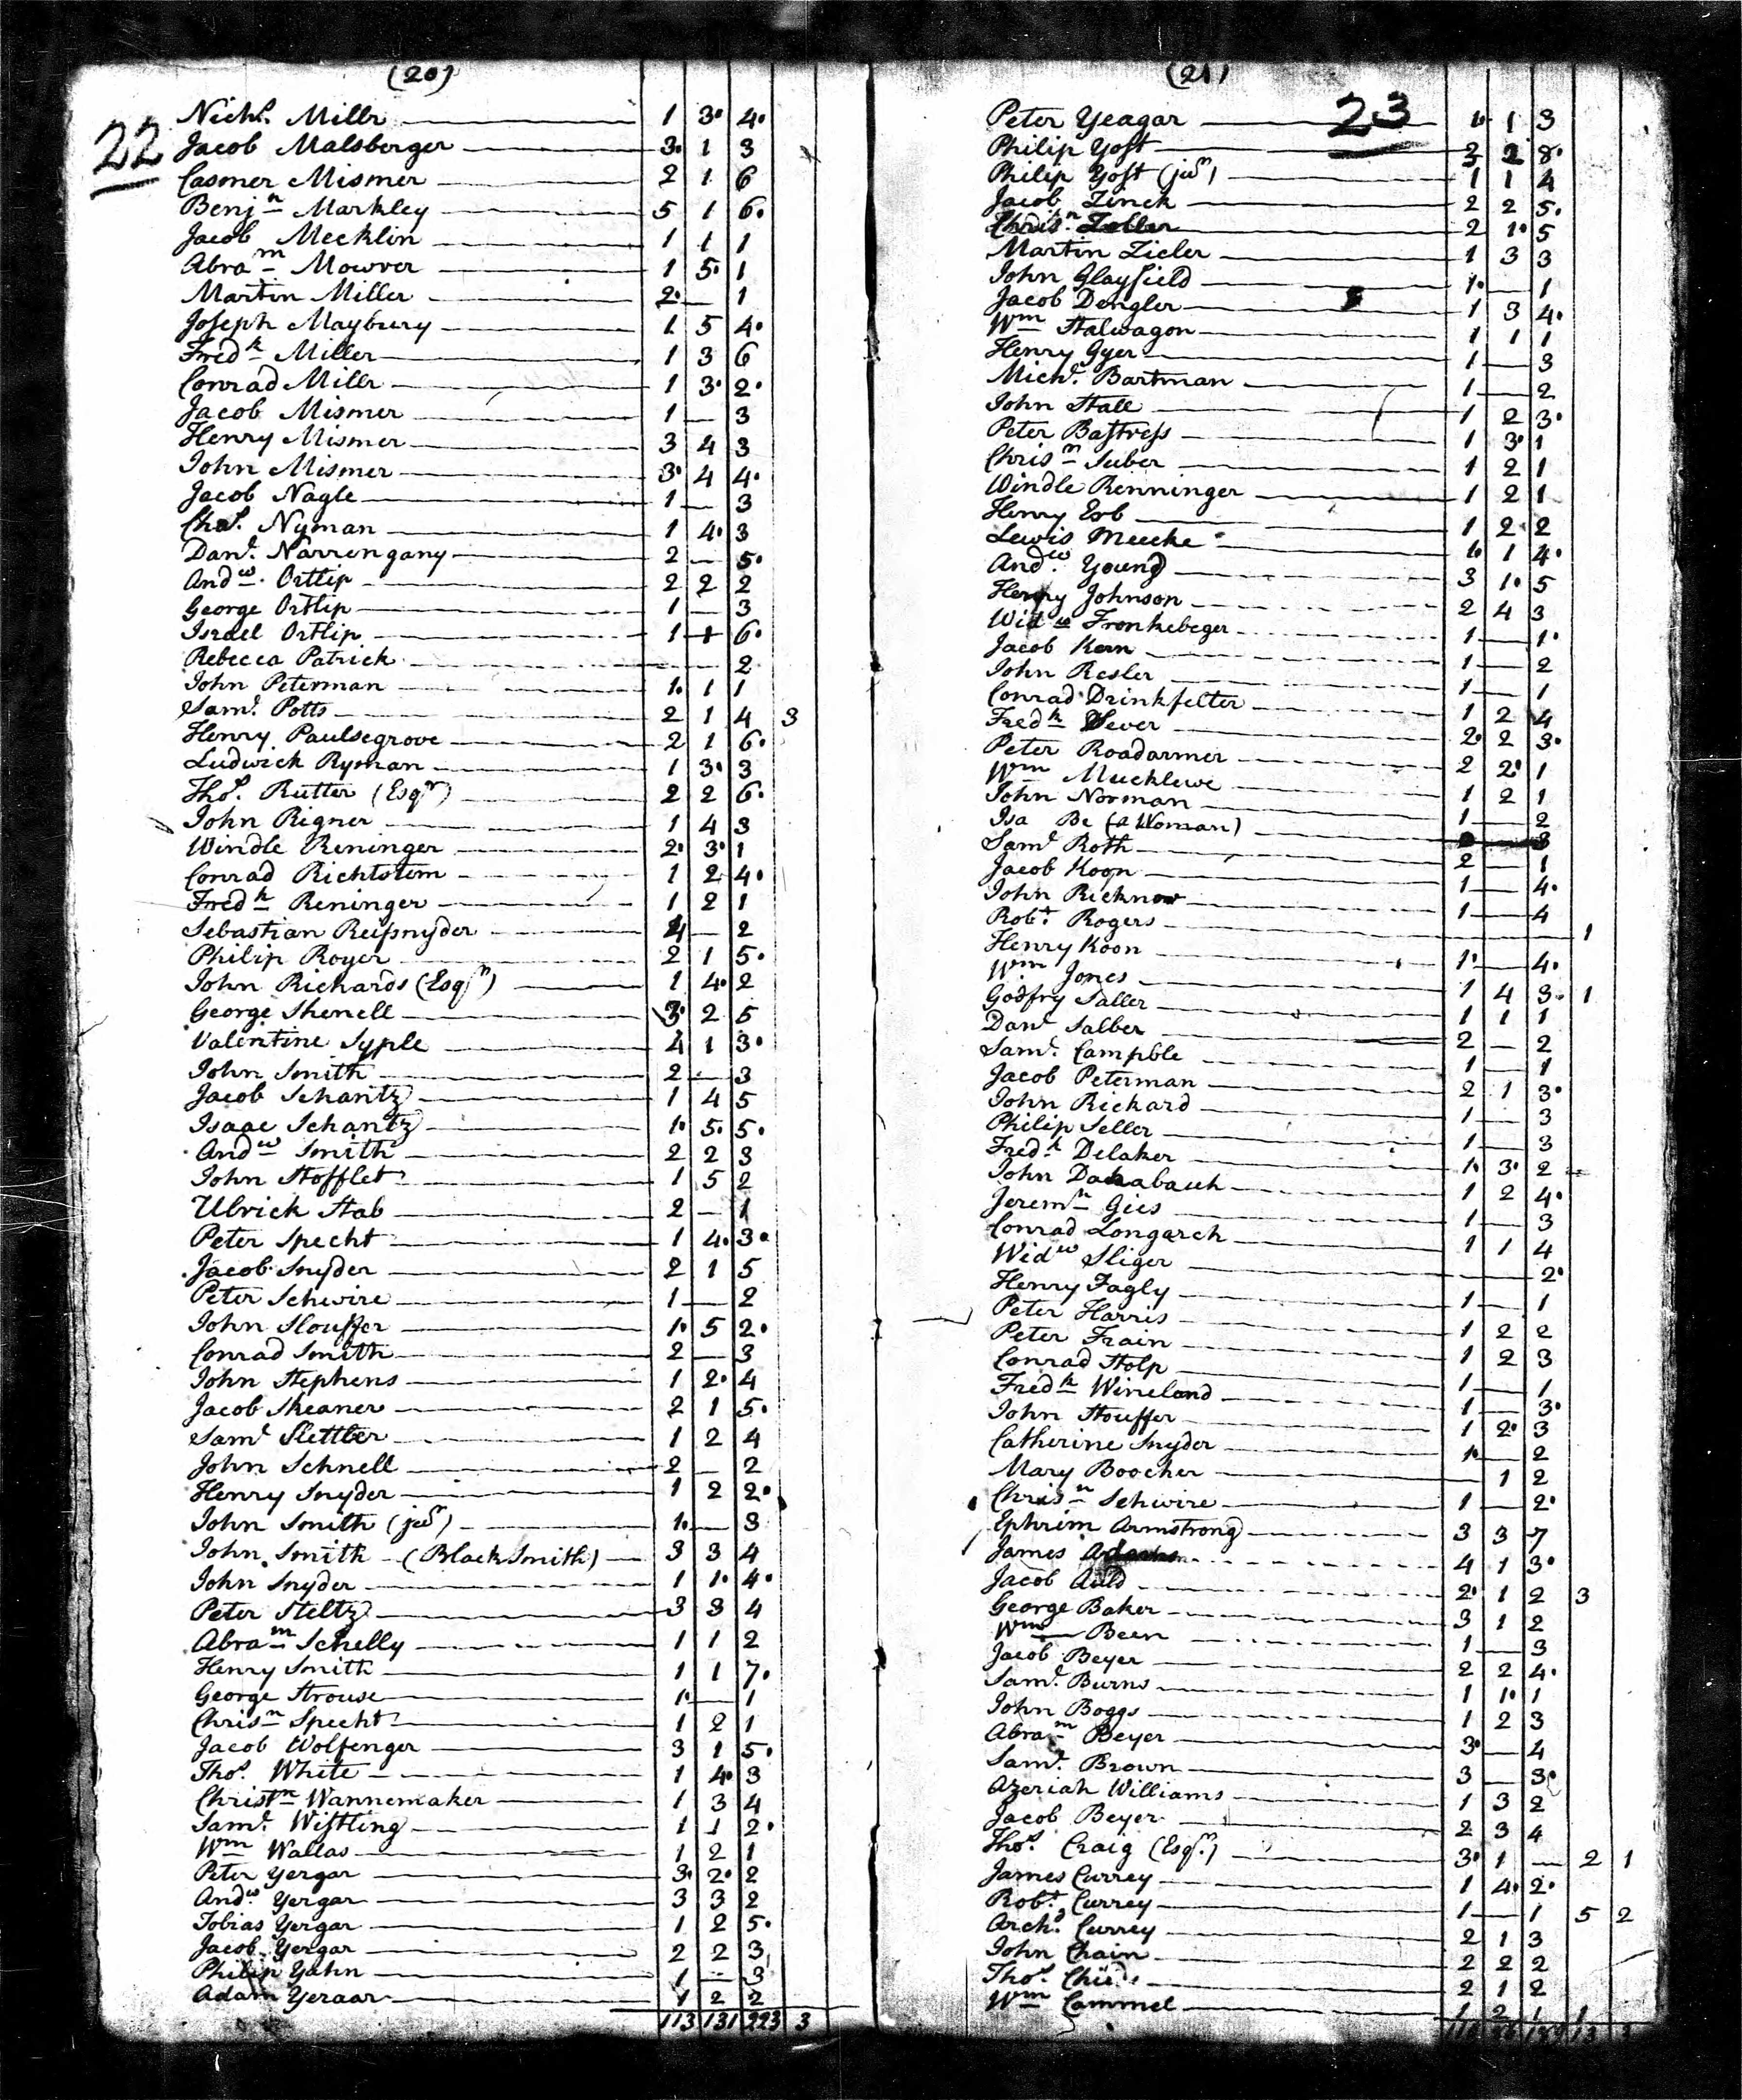 (20)
22
Nichl. Millr 1 3. 4.
Jacob Malsberger 3. 1 3
Casmer Mismer 2 1 6
Benjn Markley 5 1 6.
Jacob Mecklin 1 1 1
Abram Mowver 1 5. 1
Martin Miller 2. — 1
Joseph Maybury 1 5 4.
Fredk Miller 1 3 6
Conrad Millr 1 3. 2.
Jacob Mismer 1 — 3
Henry Mismer 3 4 3
John Mismer 3. 4 4.
Jacob Nagle 1 — 3
Chas. Nyman 1 4. 3
Danl. Narrengany 2 — 5.
Andw. Ortlip 2 2 2
George Ortlip 1 — 3
Israel Ortlip 1 1 6.
Rebecca Patrick — — 2
John Peterman 1. 1 1
Saml. Potts 2 1 4 3
Henry Paulsegrove 2 1 6.
Ludwick Ryman 1 3. 3
Thos. Rutter (Esqr) 2 2 6.
John Rigner 1 4 3
Windle Reninger 2. 3. 1
Conrad Richtstem 1 2 4.
Fredk Reninger 1 2 1
Sebastian Reifsnyder — 2
Philip Royer 2 1 5.
John Richards (Esqr) 1 4. 2
George Shenell 3. 2 5
Valentine Syple 4 1 3.
John Smith 2 — 3
Jacob Schantz 1 4 5
Isaac Schantz 1. 5. 5.
Andw Smith 2 2 3
John Stofflet 1 5 2
Ulrick Stab 2 — 1
Peter Specht 1 4. 3.
Jacob Snyder 2 1 5
Peter Schwire 1 — 2
John Slouffer 1. 5 2.
Conrad Smith 2 — 3
John Stephens 1 2. 4
Jacob Skeaner 2 1 5.
Saml Slettler 1 2 4
John Schnell 2 — 2
Henry Snyder 1 2 2.
John Smith (junr) 1. — 3
John Smith (Black Smith) 3 3 4
John Snyder 1 1. 4.
Peter Steltz 3 3 4
Abram Schelly 1 1 2
Henry Smith 1 1 7.
George Strouse 1. — 1
Chrisn Specht 1 2 1
Jacob Wolfenger 3 1 5.
Thos. White 1 4. 3
Christn Wannemaker 1 3 4
Saml. Wistling 1 1 2.
Wm Wallas 1 2 1
Peter Yergar 3. 2. 2
Andw. Yergar 3 3 2
Tobias Yergar 1 2 5.
Jacob Yergar 2 2 3
Philip Yahn 1 — 3
Adam Yeraar 1 2 2
113 131 223 3
(21)
23
Peter Yeagar 1. 1 3
Philip Yost 2 2 8.
Philip Yost (junr) 1 1 4
Jacob Zinck 2 2 5.
Chrisn. Zoller 2 1. 5
Martin Zieler 1 3 3
John Glayfield 1. — 1
Jacob Dengler 1 3 4.
Wm Stalwagon 1 1 1
Henry Gyer 1 — 3
Michl. Bartman 1 — 2
John Stall 1 2 3.
Peter Bastress 1 3. 1
Chrisn Suber 1 2 1
Windle Renninger 1 2 1
Henry Erb 1 2 2
Lewis Meecke 1. 1 4.
Andw. Young 3 1. 5
Henry Johnson 2 4 3
Widw Fronkebeger 1 — 1.
Jacob Kern 1 — 2
John Resler 1 — 1
Conrad Drinkfelter 1 2 4
Fredk Sever 2. 2 3.
Peter Roadarmer 2 2. 1
Wm Mucklewe 1 2 1
John Norman 1 — 2
Isa Be (a Woman) — 3
Saml Roth 2 — 1
Jacob Koon 1 — 4.
John Ricknor 1 — 4
Robt. Rogers — 1
Henry Koon 1. — 4.
Wm Jones 1 4 3. 1
Godfry Saller 1 1 1
Danl Salber 2 — 2
Saml. Campble 1 — 1
Jacob Peterman 2 1 3.
John Rickard 1 — 3
Philip Seller 1 — 3
Fredk Delaker 1. 3. 2
John Danabauch 1 2 4.
Jeremh Gies 1 — 3
Conrad Longarch 1 1 4
Widw Sliger — — 2.
Henry Fagly 1 — 1
Peter Harris 1 2 2
Peter Frain 1 2 3
Conrad Stolp 1 — 1
Fredk Wineland 1 — 3.
John Stouffer 1 2. 3
Catherine Snyder 1. — 2
Mary Boocher — 1 2
Chrisn Schwire 1 — 2.
Ephrim Armstrong 3 3 7
James Adams 4 1 3.
Jacob Auld 2. 1 2 3
George Baker 3 1 2
Wm Been 1 — 3
Jacob Beyer 2 2 4.
Saml. Burns 1 1. 1
John Boggs 1 2 3
Abram Beyer 3. — 4
Saml. Brown 3 — 3.
Azeriah Williams 1 3 2
Jacob Beyer 2 3 4
Thos. Craig (Esqr.) 3. 1 — 2 1
James Currey 1 4. 2.
Robt. Currey 1 — 1 5 2
Archd. Currey 2 1 3
John Chain 2 2 2
Thos. 2 1 2
Wm Cammel 1 2 1 1